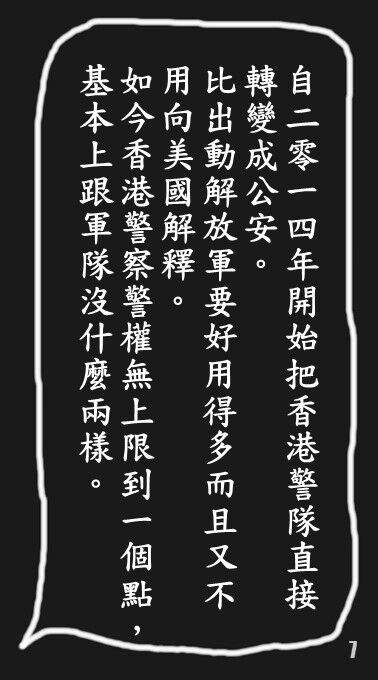 自二零一四年開始把香港警隊直接
轉變成公安。
比出動解放軍要好用得多而且又不
用向美國解釋。
如今香港警察警權無上限到一個點，
基本上跟軍隊沒什麼兩樣。
1